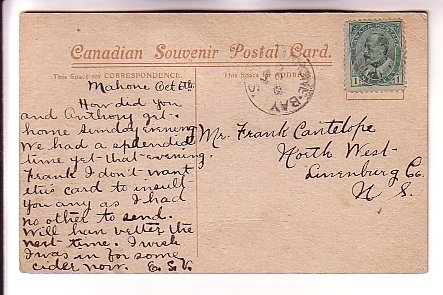 Canadian Souvenir Postal Card.
This Space for CORRESPONDENCE.
This Space for ADDRESS
Mahone Oct 6th
How did you
and Anthony git
home Sunday evning
We had a splendid
time yet that evening.
Frank I don't want
this card to insult
you any as I had
no other to send.
Will han vetter the
next time. I wish
I was in for some
cider now. E.S.V.
E-BAY
N.S.
1 1
Mr. Frank Cantelope
North West
Lunenburg Co.
N S.